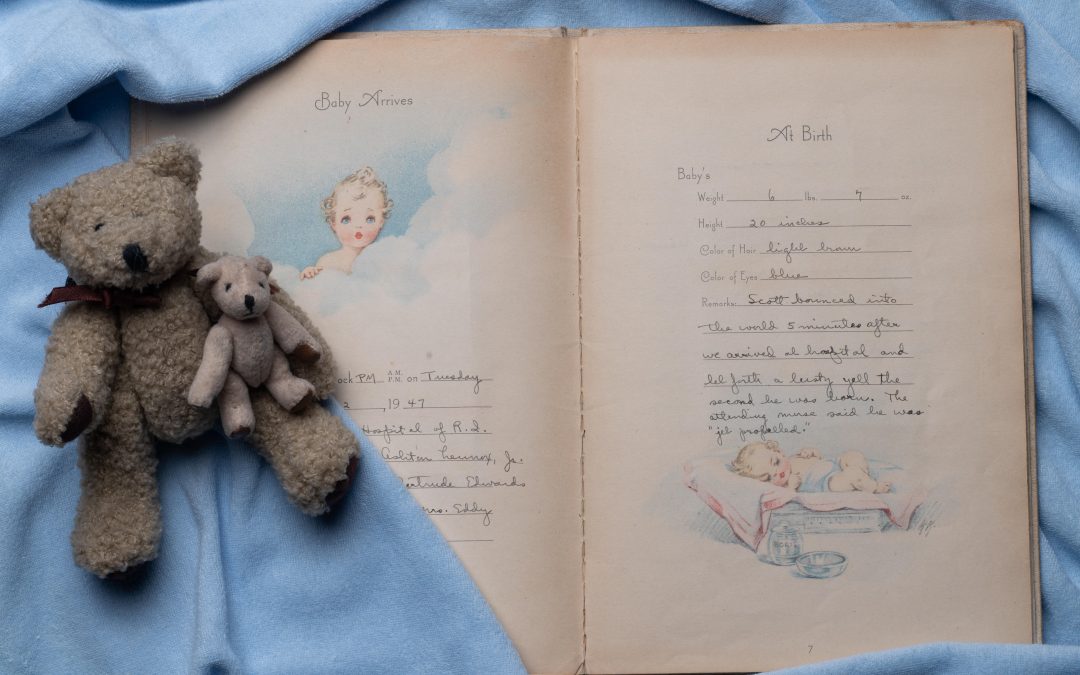 Baby Arrives
ock PM A.M. P.M. on Tuesday
2, 1947
Hospital of R.I.
Ashton Lennox, Jr.
ertrude Edwards
Eddy
At Birth
Baby's
Weight 6 lbs. 7 oz.
Height 20 inches
Color of Hair light brown
Color of Eyes blue
Remarks: Scott bounced into
the world 5 minutes after
we arrived at hospital and
let forth a lusty yell the
second he was born. The
attending nurse said he was
"jet propelled."
7